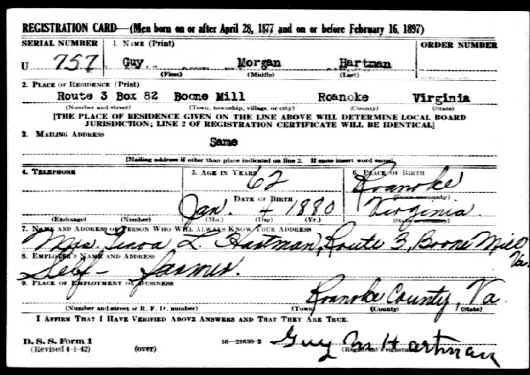 REGISTRATION CARD—(Men born on or after April 28, 1877 and on or before February 16, 1897)
SERIAL NUMBER 1. NAME (Print) ORDER NUMBER
U 757 Guy Morgan Hartman
(First) (Middle) (Last)
2. PLACE OF RESIDENCE (Print)
Route 3 Box 82 Boone Mill Roanoke Virginia
(Number and street) (Town, township, village, or city) (County) (State)
[THE PLACE OF RESIDENCE GIVEN ON THE LINE ABOVE WILL DETERMINE LOCAL BOARD
JURISDICTION; LINE 2 OF REGISTRATION CERTIFICATE WILL BE IDENTICAL]
3. MAILING ADDRESS
Same
[Mailing address if other than place indicated on line 2. If same insert word same]
4. TELEPHONE 5. AGE IN YEARS 6. PLACE OF BIRTH
62 Roanoke
DATE OF BIRTH
Jan. 4 1880 Virginia
(Exchange) (Number) (Mo.) (Day) (Yr.)
7. NAME AND ADDRESS OF PERSON WHO WILL ALWAYS KNOW YOUR ADDRESS
Mrs. L. Hartman, Route 3, Boone Mill
Va.
8. EMPLOYER'S NAME AND ADDRESS
Self - farmer.
9. PLACE OF EMPLOYMENT OR BUSINESS
Roanoke County, Va.
(Number and street or R. F. D. number) (Town) (County) (State)
I AFFIRM THAT I HAVE VERIFIED ABOVE ANSWERS AND THAT THEY ARE TRUE.
D. S. S. Form 1
(Revised 4-1-42) (over) Guy M Hartman